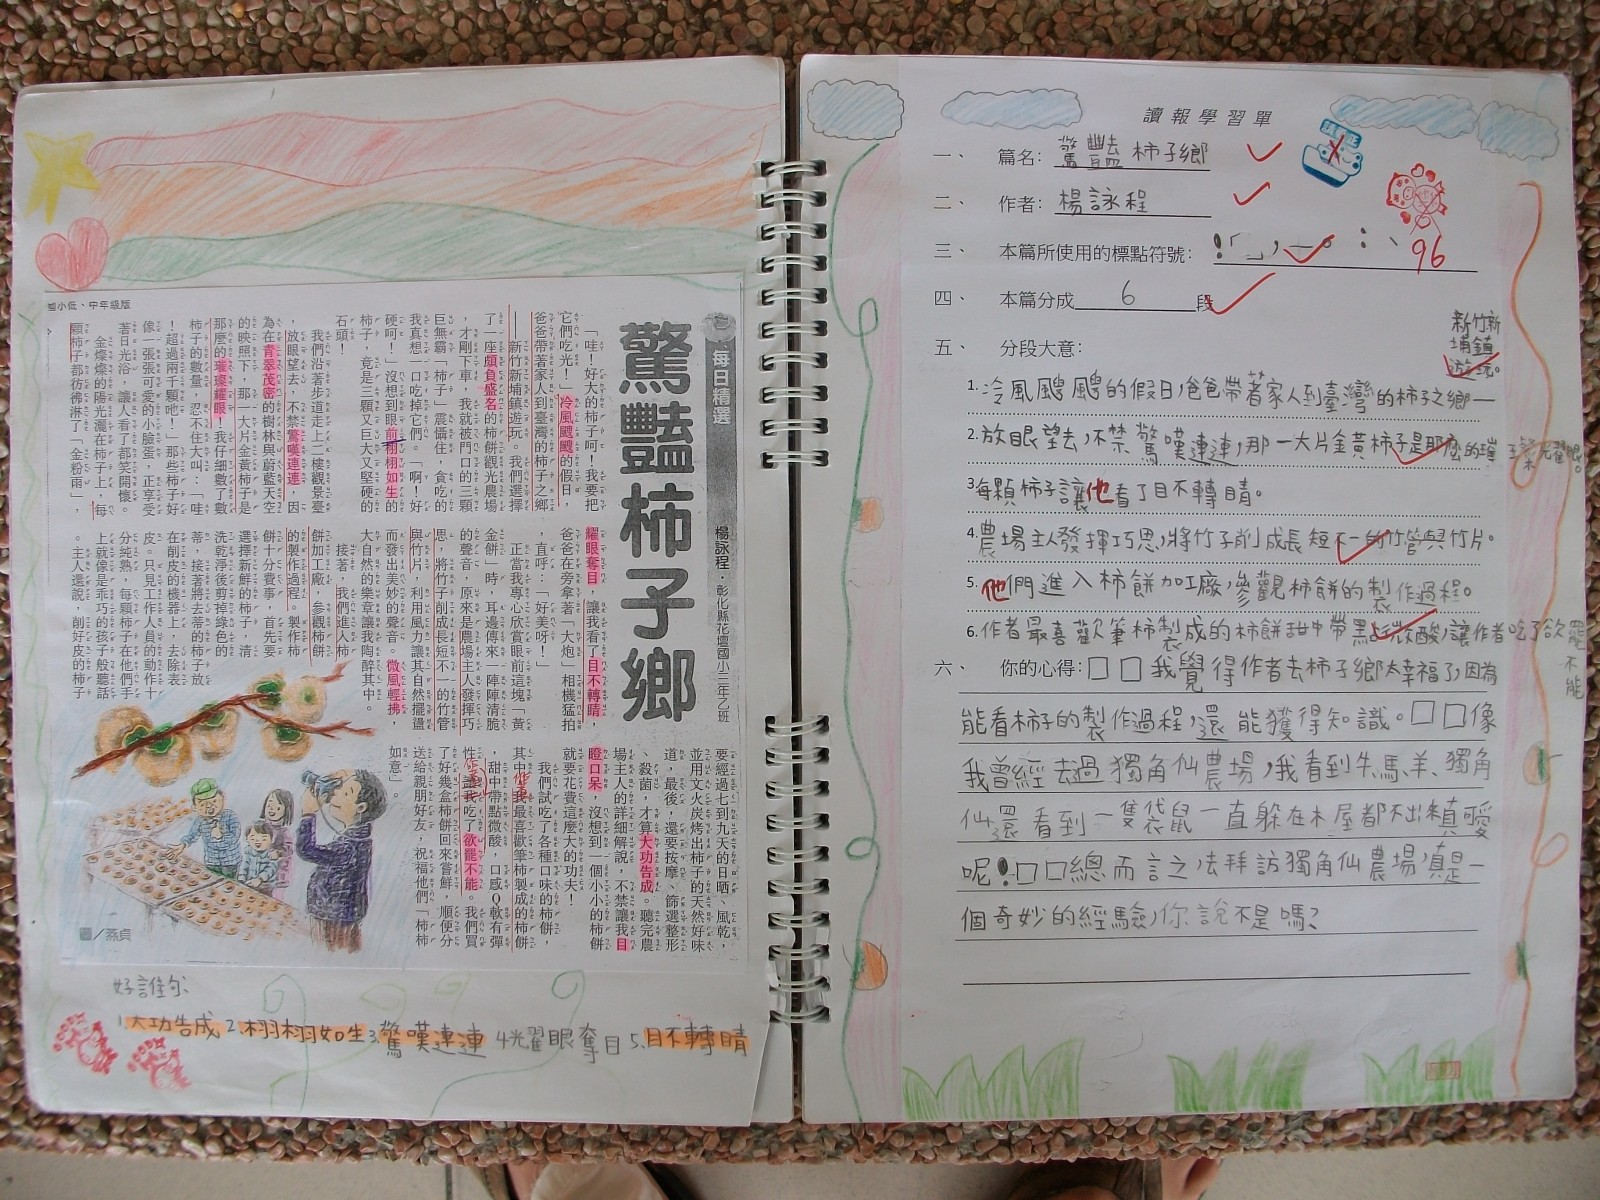 國小低、中年級版
每日精選
驚豔柿子鄉
楊詠程．彰化縣花壇國小三年乙班
「哇！好大的柿子呵！我要把
它們吃光！」冷風颼颼的假日，
爸爸帶著家人到臺灣的柿子之鄉
——新竹新埔鎮遊玩。我們選擇
了一座頗負盛名的柿餅觀光農場
，才剛下車，我就被門口的三顆
巨無霸「柿子」震懾住，貪吃的
我真想一口吃掉它們。「啊！好
硬呵！」沒想到眼前栩栩如生的
柿子，竟是三顆又巨大又堅硬的
石頭！
我們沿著步道走上二樓觀景臺
，放眼望去，不禁驚嘆連連，因
為在青翠茂密的樹林與蔚藍天空
的映照下，那一大片金黃柿子是
那麼的璀璨耀眼！我仔細數了數
柿子的數量，忍不住大叫：「哇
！超過兩千顆吔！」那些柿子好
像一張張可愛的小臉蛋，正享受
著日光浴，讓人看了都笑開懷。
金燦燦的陽光灑在柿子上，每
顆柿子都彷彿淋了「金粉雨」，
耀眼奪目，讓我看了目不轉睛，
爸爸在旁拿著「大炮」相機猛拍
，直呼：「好美呀！」
正當我專心欣賞眼前這塊「黃
金餅」時，耳邊傳來一陣陣清脆
的聲音，原來是農場主人發揮巧
思，將竹子削成長短不一的竹管
與竹片，利用風力讓其自然擺盪
而發出美妙的聲音。微風輕拂，
大自然的樂章讓我陶醉其中。
接著，我們進入柿
餅加工廠，參觀柿餅
的製作過程。製作柿
餅十分費事，首先要
選擇新鮮的柿子，清
洗乾淨後剪掉綠色的
蒂，接著將去蒂的柿子放
在削皮的機器上，去除表
皮。只見工作人員的動作十
分純熟，每顆柿子在他們手
上就像是乖巧的孩子般聽話
。主人還說，削好皮的柿子
要經過七到九天的日晒、風乾，
並用文火炭烤出柿子的天然好味
道，最後，還要按摩、篩選整形
、殺菌，才算大功告成。聽完農
場主人的詳細解說，不禁讓我目
瞪口呆，沒想到一個小小的柿餅
就要花費這麼大的功夫！
我們試吃了各種口味的柿餅，
其中我最喜歡筆柿製成的柿餅
，甜中帶點微酸，口感Q軟有彈
性，讓我吃了欲罷不能。我們買
了好幾盒柿餅回來嘗鮮，順便分
送給親朋好友，祝福他們「柿柿
如意」。
作者
作者
圖／燕貞
好詞佳句
1.大功告成 2.栩栩如生 3.驚嘆連連 4光耀眼奪目 5.目不轉睛
讀報學習單
一、 篇名：驚豔柿子鄉
二、 作者：楊詠程
三、 本篇所使用的標點符號：！「」，—。：、
96
四、 本篇分成 6 段
五、 分段大意：
新竹新
埔鎮
遊玩。
1.冷風颼颼的假日，爸爸帶著家人到臺灣的柿子之鄉—
2.放眼望去，不禁驚嘆連連，那一大片金黃柿子是那麼的璀璨光耀眼。
3每顆柿子讓他看了目不轉睛。
4.農場主人發揮巧思，將竹子削成長短不一的竹管與竹片。
5.他們進入柿餅加工廠，參觀柿餅的製作過程。
6.作者最喜歡筆柿製成的柿餅甜中帶點微酸，讓作者吃了欲罷不能
六、 你的心得：□□我覺得作者去柿子鄉太幸福了，因為
能看柿子的製作過程，還能獲得知識。□□像
我曾經去過獨角仙農場，我看到牛、馬、羊、獨角
仙還看到一隻袋鼠一直躲在木屋都不出來真可愛
呢！□□總而言之，去拜訪獨角仙農場，真是一
個奇妙的經驗，你說不是嗎？